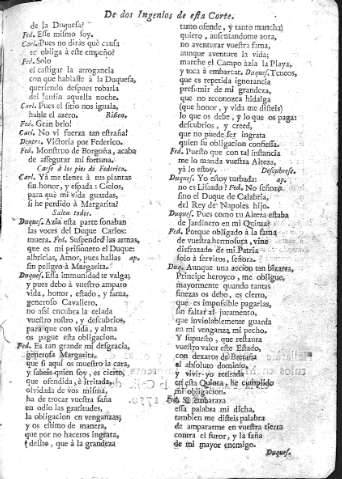 De dos Ingenios de esta Corte.
de la Duquesa?
Fed. Esse mismo soy.
Carl. Pues no dirás què causa
te obliga à este empeño?
Fed. Solo
el castigar la arrogancia
con que hablaste à la Duquesa,
queriendo despues robarla
del Jardin aquella noche.
Carl. Pues si el sitio nos iguala,
hable el azero. Riñen.
Fed. Gran belo!
Carl. No vi fuerza tan estraña!
Dentro. Victoria por Federico.
Fed. Monstruo de Borgoña, acaba
de assegurar mi fortuna.
Caese à los pies de Federico.
Carl. Yà me tienes à tus plantas
sin honor, y espada: Cielos,
para què mi vida guardas,
si he perdido à Margarita?
Salen todos.
Duques. Azia esta parte sonaban
las voces del Duque Carlos:
muera. Fed. Suspended las armas,
que es mi prisionero el Duque
Albricias, Amor, pues hallas ap.
sin peligro à Margarita.
Duques. Esta immunidad te valga;
y pues debo à vuestro amparo
vida, honor, estado, y fama,
generoso Cavallero,
no assi encubra la celada
vuestro rostro, y descubrios,
para que con vida, y alma
os pague esta obligacion.
Fed. Es tan grande mi desgracia,
generosa Margarita,
que si aqui os muestro la cara,
y sabeis quien soy, es cierto,
que ofendida, è irritada,
olvidada de vos misma,
ha de trocar vuestra saña
en odio las gratitudes,
la obligacion en venganzas;
y os estimo de manera,
que por no haceros ingrata,
(delito, que à la grandeza
tanto ofende, y tanto mancha)
quiero, ausentandome aora,
no aventurar vuestra fama,
aunque aventure la vida;
marche el Campo àzia la Playa,
y toca à embarcar. Duques. Teneos,
que es repetida ignorancia
presumir de mi grandeza,
que no reconozca hidalga
(que honor, y vida me disteis)
lo que os debe, y lo que os paga:
descubrios, y creed,
que no puede ser ingrata
quien su obligacion confiessa.
Fed. Puesto que con tal instancia
me lo manda vuestra Alteza,
yà lo estoy. Descubrese.
Duques. Yo estoy turbada: ap.
no es Lisardo? Fed. No señora,
sino el Duque de Calabria,
del Rey de Napoles hijo.
Duques. Pues como tu Alteza estaba
de Jardinero en mi Quinta?
Fed. Porque obligado à la fama
de vuestra hermosura, vino
disfrazado de mi Patria
solo à serviros, señora.
Duq. Aunque una accion tan bizarra,
Principe heroyco, me obligue,
mayormente quando tantas
finezas os debo, es cierto,
que es impossible pagarlas,
sin faltar al juramento,
que inviolablemente guarda
en mi venganza mi pecho.
Y supuesto, que restaura
vuestro valor este Estado,
con dexaros de Bretaña
el absoluto dominio,
y vivir yo retirada
en esta Quinta, he cumplido
mi obligacion.
Fed. Si embaraza
essa palabra mi dicha,
tambien me disteis palabra
de ampararme en vuestra tierra
contra el furor, y la saña
de mi mayor enemigo.
Duques.